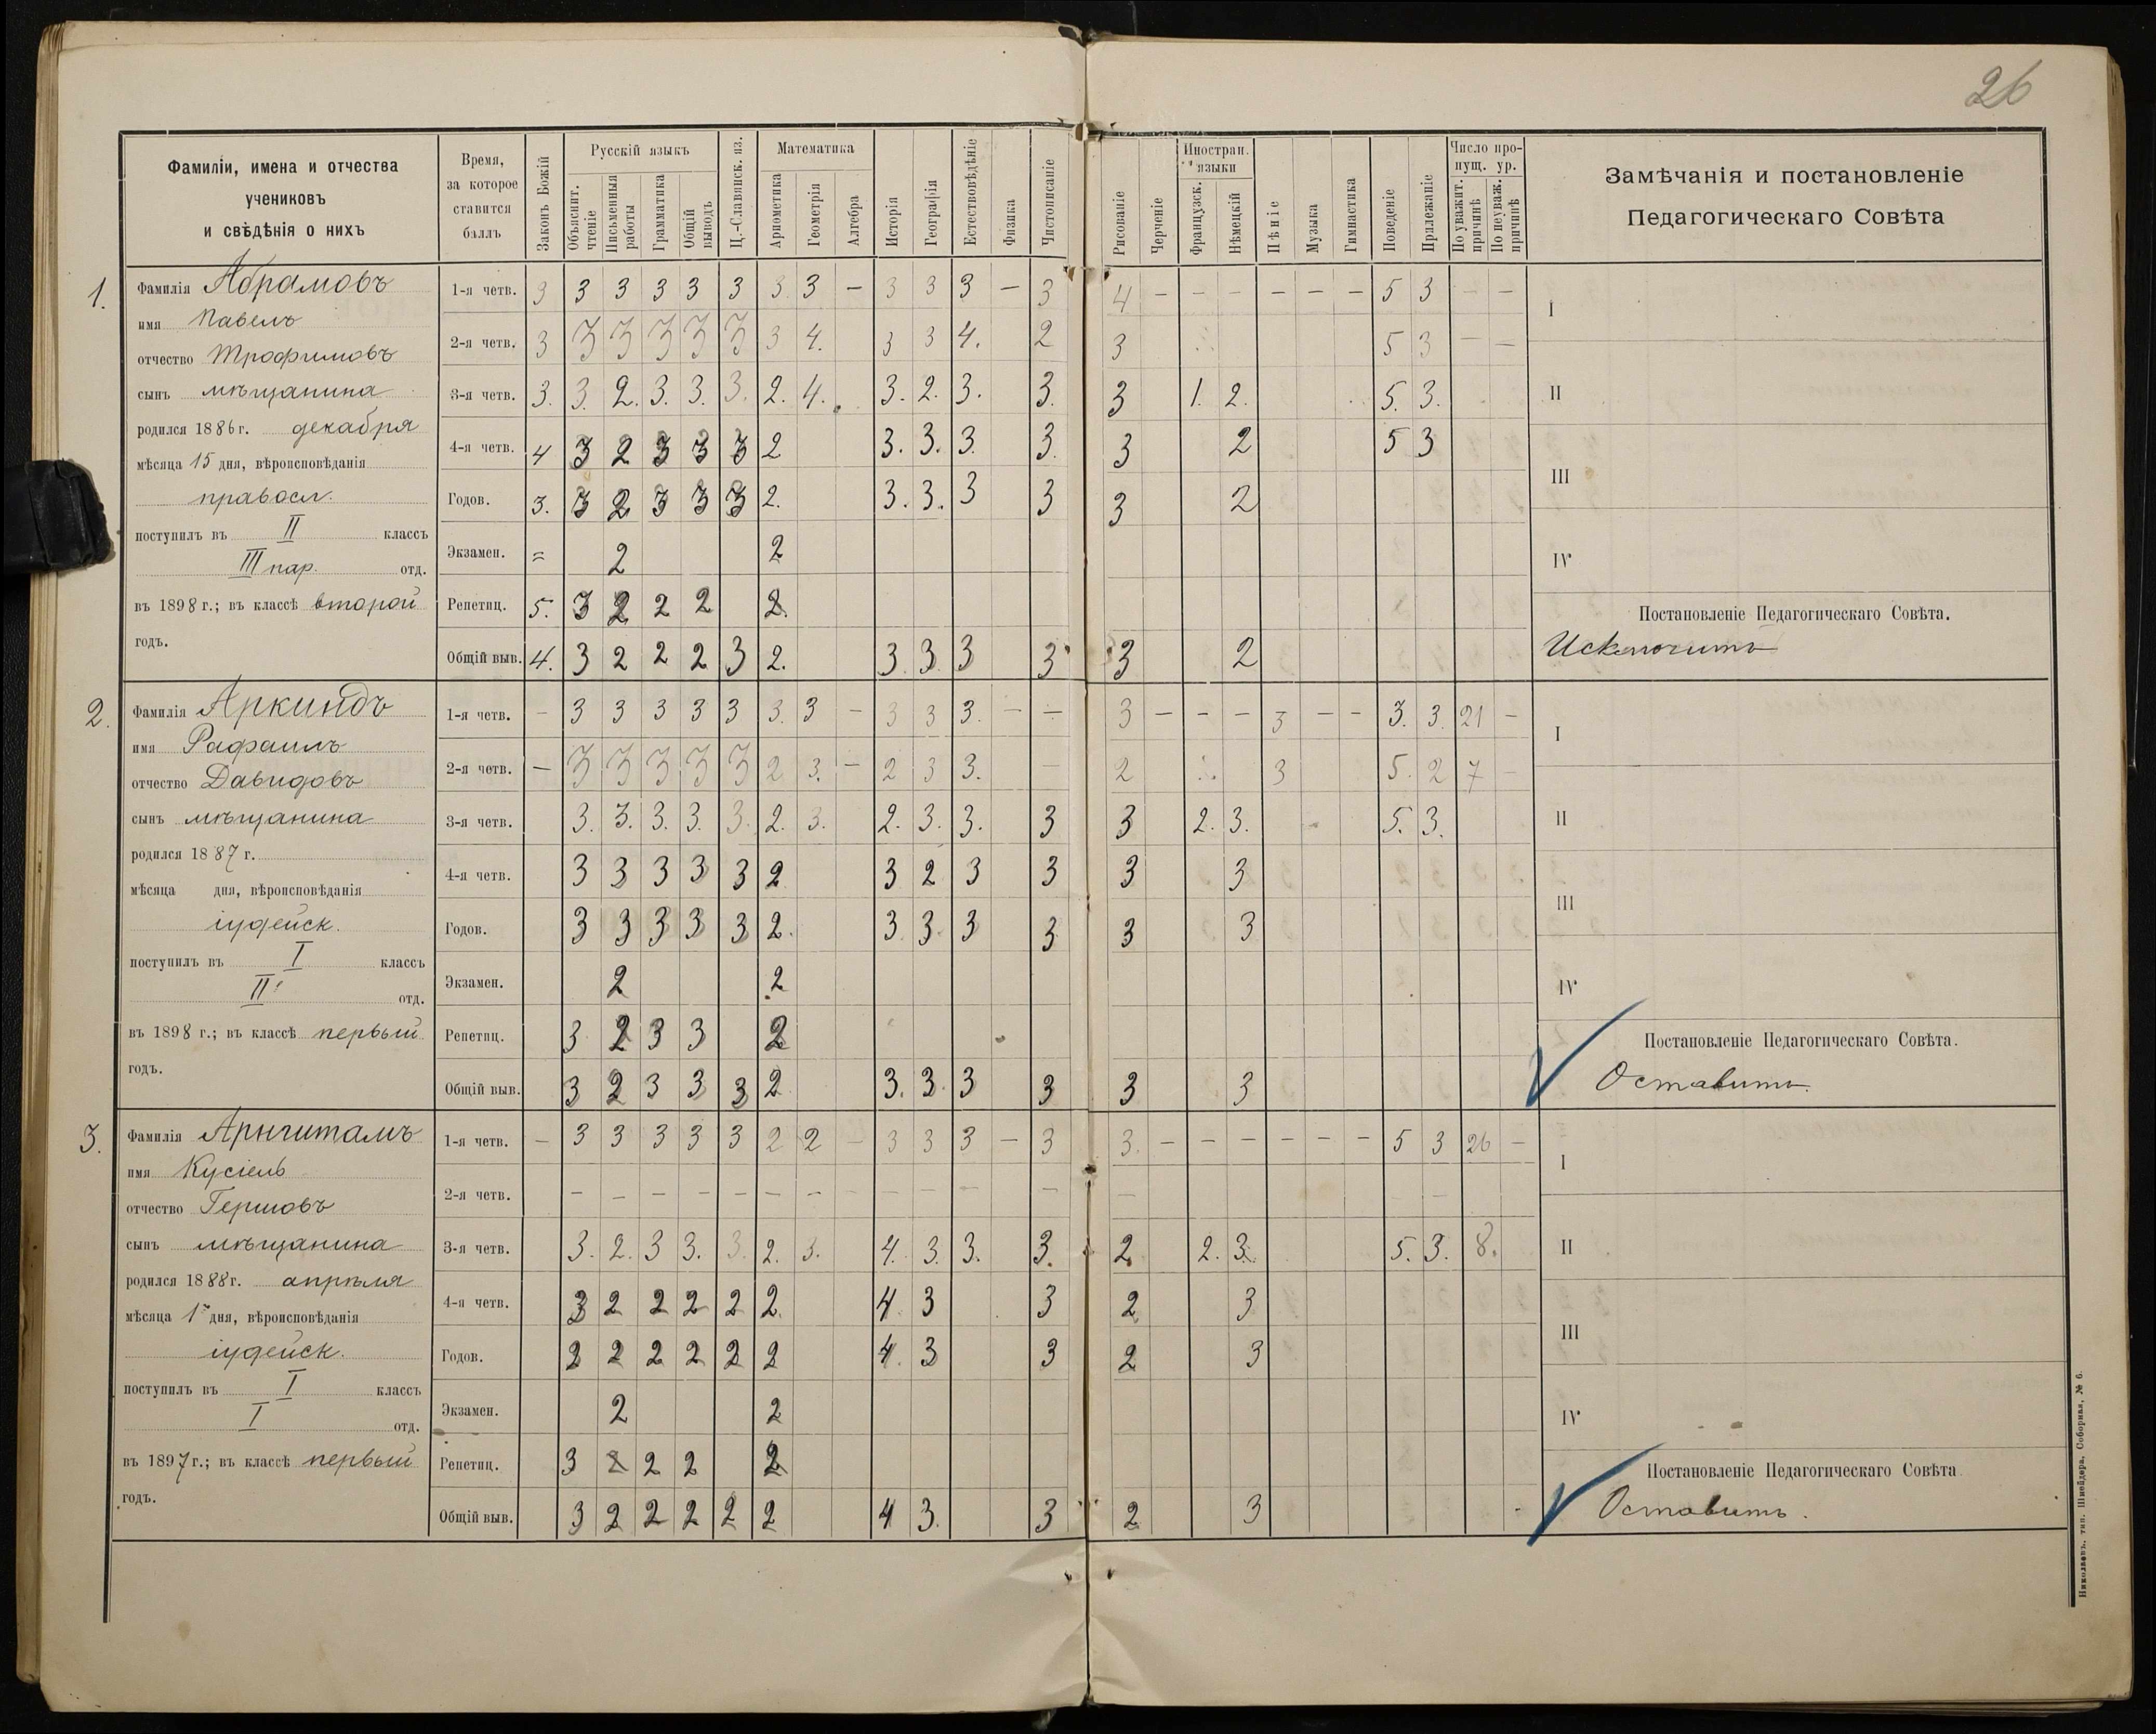 26
Фамиліи, имена и отчества
учениковъ
и свѣдѣнія о нихъ
Время,
за которое
ставится
баллъ
Законъ Божій
Русскій языкъ
Объяснит. чтеніе
Письменныя работы
Грамматика
Общій выводъ
Ц.-Славянск. яз.
Математика
Ариѳметика
Геометрія
Алгебра
Исторія
Географія
Естествовѣдѣніе
Физика
Чистописаніе
Рисованіе
Черченіе
Иностран. языки
Французск.
Нѣмецкій
Пѣніе
Музыка
Гимнастика
Поведеніе
Прилежаніе
Число пропущ. ур.
По уважит. причинѣ
По неуваж. причинѣ
Замѣчанія и постановленіе
Педагогическаго Совѣта
1.
Фамилія Абрамовъ
имя Павелъ
отчество Трофимовъ
сынъ мѣщанина
родился 1886 г. декабря
мѣсяца 15 дня, вѣроисповѣданія
правосл.
поступилъ въ II классъ
III пар. отд.
въ 1898 г.; въ классѣ второй
годъ.
1-я четв. 3 3 3 3 3 3 3. 3 — 3 3 3 — 3 4 — — — — — — 5 3 — —
2-я четв. 3 3 3 3 3 3 3 4. 3 3 4. 2 3 5 3 — —
3-я четв. 3. 3. 2. 3. 3. 3. 2. 4. 3. 2. 3. 3. 3 1. 2. 5. 3.
4-я четв. 4 3 2 3 3 3 2 3. 3. 3. 3. 3 2 5 3
Годов. 3. 3 2 3 3 3 2. 3. 3. 3 3 3 2
Экзамен. = 2 2
Репетиц. 5. 3 2 2 2 2.
Общій выв. 4. 3 2 2 2 3 2. 3. 3. 3 3 3 2
I
II
III
IV
Постановленіе Педагогическаго Совѣта.
Исключить
2.
Фамилія Аркиндъ
имя Рафаилъ
отчество Давидовъ
сынъ мѣщанина
родился 1887 г.
мѣсяца дня, вѣроисповѣданія
іудейск.
поступилъ въ I классъ
II отд.
въ 1898 г.; въ классѣ первый
годъ.
1-я четв. — 3 3 3 3 3 3. 3 — 3 3 3. — — 3 — — — 3 — — 3. 3. 21 —
2-я четв. — 3 3 3 3 3 2 3. — 2 3 3. — 2 3 5. 2 7 —
3-я четв. 3. 3. 3. 3. 3. 2. 3. 2. 3. 3. 3 3 2. 3. 5. 3.
4-я четв. 3 3 3 3 3 2 3 2 3 3 3 3
Годов. 3 3 3 3 3 2. 3. 3. 3 3 3 3
Экзамен. 2 2
Репетиц. 3 2 3 3 2
Общій выв. 3 2 3 3 3 2 3. 3. 3 3 3 3
I
II
III
IV
Постановленіе Педагогическаго Совѣта.
Оставить.
3.
Фамилія
имя Кусіель
отчество Гершовъ
сынъ мѣщанина
родился 1888 г. апрѣля
мѣсяца 1 дня, вѣроисповѣданія
іудейск.
поступилъ въ I классъ
I отд.
въ 1897 г.; въ классѣ первый
годъ.
1-я четв. — 3 3 3 3 3 2 2 — 3 3 3 — 3 3. — — — — — — 5 3 26 —
2-я четв. — — — — — — — — — — — — —
3-я четв. 3. 2. 3 3. 3. 2. 3. 4. 3. 3. 3. 2 2. 3. 5. 3. 8.
4-я четв. 3 2 2 2 2 2. 4. 3 3 2 3
Годов. 2 2 2 2 2 2 4. 3 3 2 3
Экзамен. 2 2
Репетиц. 3 2 2 2 2
Общій выв. 3 2 2 2 2 2 4 3. 3 2 3
I
II
III
IV
Постановленіе Педагогическаго Совѣта.
Оставить.
Николаевъ. тип. Шнейдера, Соборная, № 6.